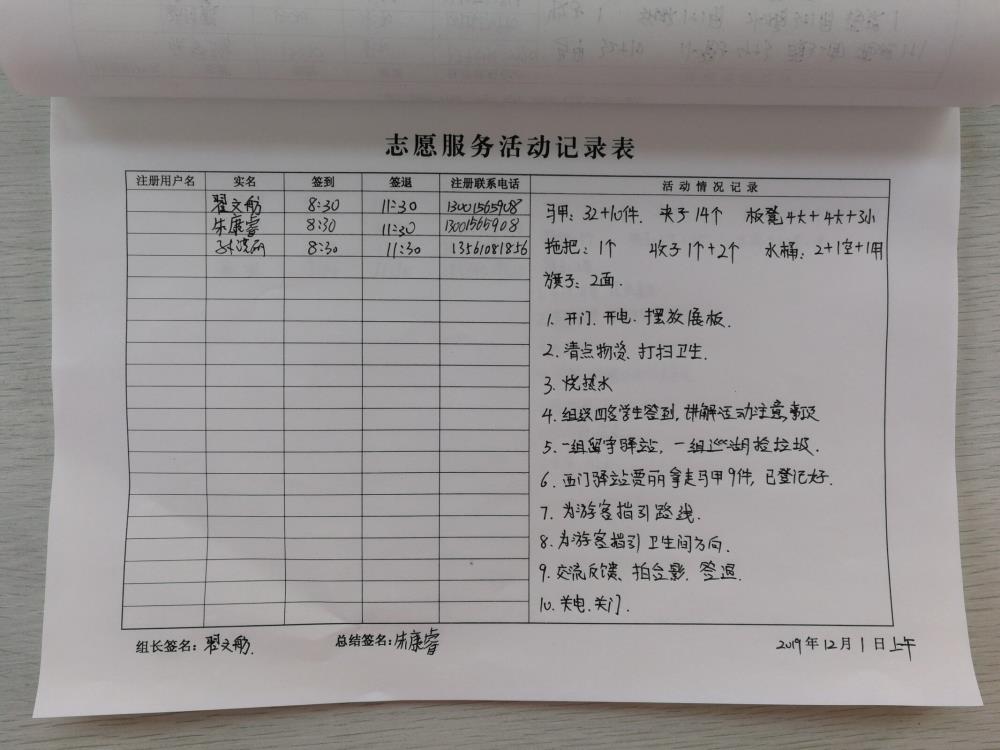 志愿服务活动记录表
注册用户名 实名 签到 签退 注册联系电话 活动情况记录
翟文舫 8:30 11:30 13001565908
朱康睿 8:30 11:30 13001565908
8:30 11:30 13561081856
马甲：32+10件. 夹子14个 板凳4大+4大+3小
拖把：1个 收子1个+2个 水桶：2+1空+1用
旗子：2面.
1. 开门、开电、摆放展板.
2. 清点物资、打扫卫生.
3. 烧热水
4. 组织四名学生签到, 讲解活动注意事项
5. 一组留守驿站, 一组巡湖捡垃圾.
6. 西门驿站贾丽拿走马甲9件, 已登记好.
7. 为游客指引路线.
8. 为游客指引卫生间方向.
9. 交流反馈、拍合影、签退.
10. 关电、关门.
组长签名：翟文舫. 总结签名：朱康睿 2019年12月1日上午